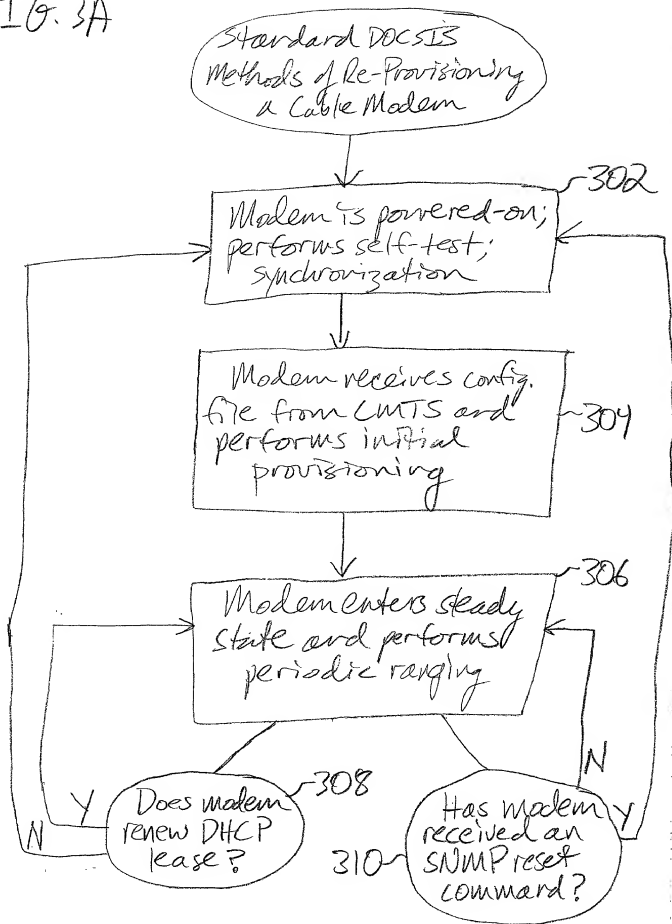 IG. 3A
Standard DOCSIS
Methods of Re-Provisioning
a Cable Modem
302
Modem is powered-on;
performs self-test;
synchronization
Modem receives config.
file from CMTS and
performs initial
provisioning
304
306
Modem enters steady
state and performs
periodic ranging
N
308
Y
Does modem
renew DHCP
lease?
N
Has modem
received an
SNMP reset
command?
Y
310